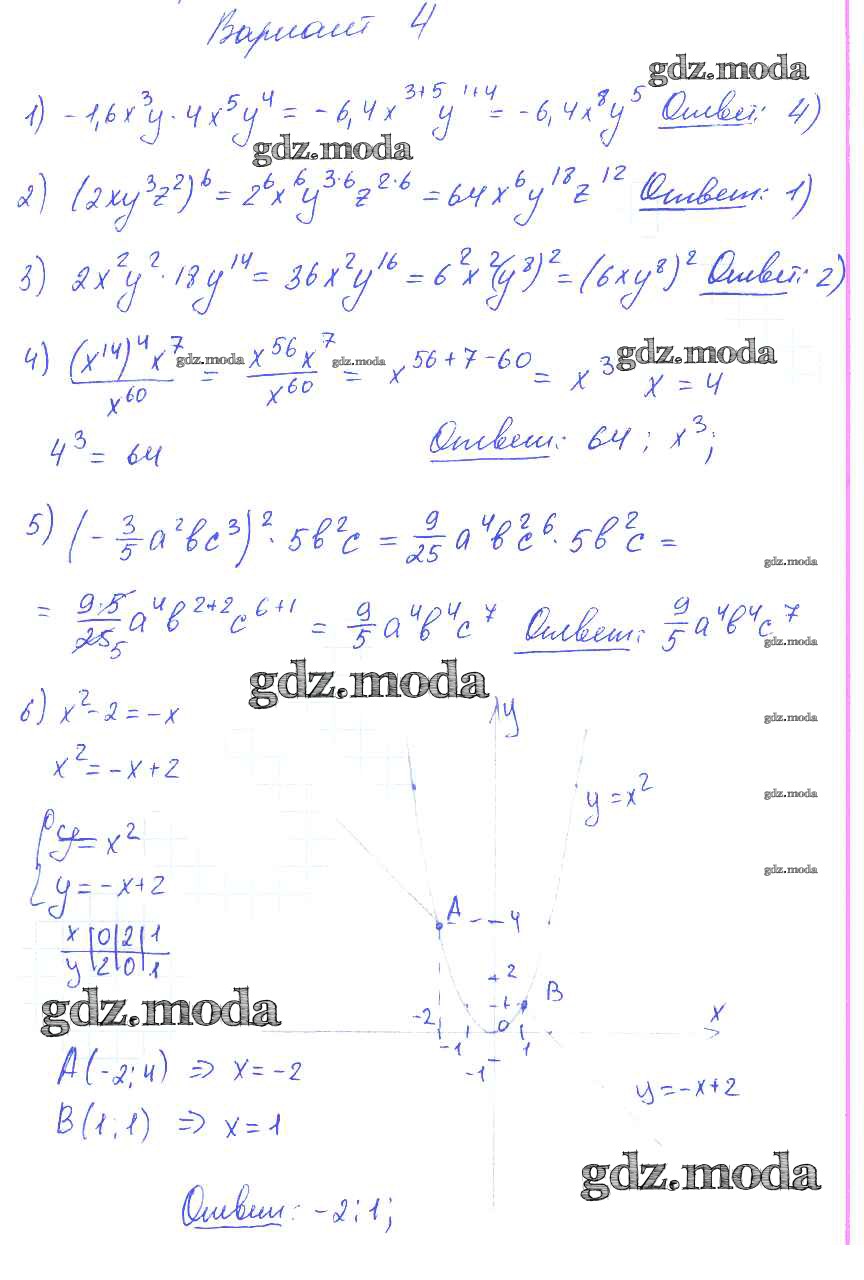 Вариант 4
gdz.moda
1) -1,6x³y · 4x⁵y⁴ = -6,4x³⁺⁵y¹⁺⁴ = -6,4x⁸y⁵ Ответ: 4)
gdz.moda
2) (2xy³z²)⁶ = 2⁶x⁶y³·⁶z²·⁶ = 64x⁶y¹⁸z¹² Ответ: 1)
3) 2x²y² · 18y¹⁴ = 36x²y¹⁶ = 6²x²(y⁸)² = (6xy⁸)² Ответ: 2)
4) (x¹⁴)⁴x⁷/x⁶⁰ = x⁵⁶x⁷/x⁶⁰ = x⁵⁶⁺⁷⁻⁶⁰ = x³ x = 4
gdz.moda gdz.moda gdz.moda
4³ = 64 Ответ: 64; x³;
5) (-3/5 a²bc³)² · 5b²c = 9/25 a⁴b²c⁶ · 5b²c =
gdz.moda
= 9·5/25 5 a⁴b²⁺²c⁶⁺¹ = 9/5 a⁴b⁴c⁷ Ответ: 9/5 a⁴b⁴c⁷
gdz.moda
gdz.moda
6) x² - 2 = -x
gdz.moda
x² = -x + 2
gdz.moda
y = x²
y = -x + 2
gdz.moda
x 0 2 1
y 2 0 1
gdz.moda
A(-2; 4) => x = -2
B(1; 1) => x = 1
y
y = x²
A
4
2
B
x
-2
-1
0
1
-1
y = -x + 2
gdz.moda
Ответ: -2; 1;